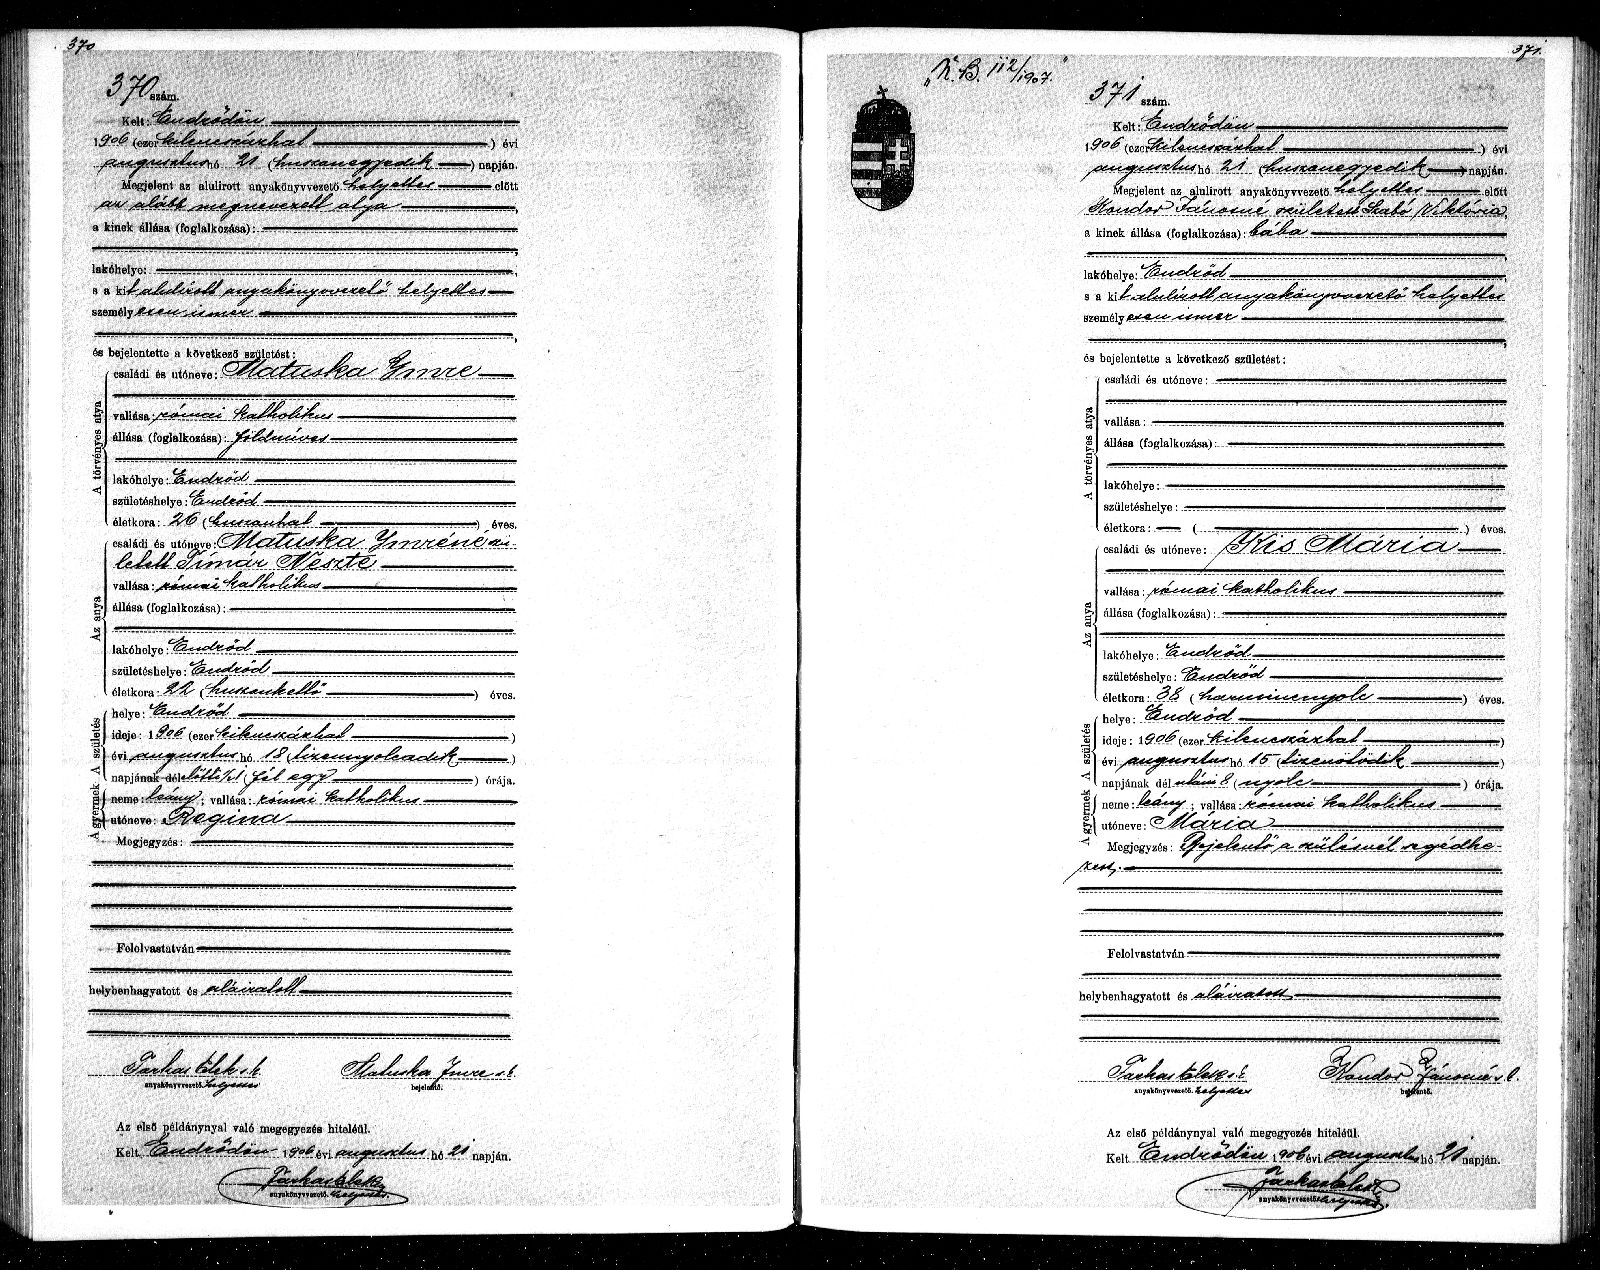 370
370 szám.
Kelt: Endrődön
1906 (ezer kilenczszázhat) évi
augusztus hó 21 (huszonegyedik) napján.
Megjelent az alulirott anyakönyvvezető helyettes előtt
az alább megnevezett atya
a kinek állása (foglalkozása):
lakóhelye:
s a kit alulirott anyakönyvvezető helyettes
személyesen ismer
és bejelentette a következő születést:
A törvényes atya
családi és utóneve: Matuska Imre
vallása: római katholikus
állása (foglalkozása): földmíves
lakóhelye: Endrőd
születéshelye: Endrőd
életkora: 26 (huszonhat) éves.
Az anya
családi és utóneve: Matuska Imréné szü-
letett Tímár
vallása: római katholikus
állása (foglalkozása):
lakóhelye: Endrőd
születéshelye: Endrőd
életkora: 22 (huszonkettő) éves.
A születés
helye: Endrőd
ideje: 1906 (ezer kilenczszázhat)
évi augusztus hó 18 (tizennyolcadik)
napjának délelőtti (fél egy) órája.
A gyermek
neme: leány; vallása: római katholikus
utóneve: Regina
Megjegyzés:
Felolvastatván
helybenhagyatott és aláiratott
Farkas Elek s.k. Matuska Imre s.k.
anyakönyvvezető helyettes bejelentő.
Az első példánynyal való megegyezés hiteléül.
Kelt Endrődön 1906 évi augusztus hó 21 napján.
Farkas Elek
anyakönyvvezető helyettes
371.
"K.B. 112/1907."
371 szám.
Kelt: Endrődön
1906 (ezer kilenczszázhat) évi
augusztus hó 21 (huszonegyedik) napján.
Megjelent az alulirott anyakönyvvezető helyettes előtt
Kondor Jánosné született Szabó Viktória
a kinek állása (foglalkozása): bába
lakóhelye: Endrőd
s a kit alulirott anyakönyvvezető helyettes
személyesen ismer
és bejelentette a következő születést:
A törvényes atya
családi és utóneve:
vallása:
állása (foglalkozása):
lakóhelye:
születéshelye:
életkora: ( ) éves.
Az anya
családi és utóneve: Kis Mária
vallása: római katholikus
állása (foglalkozása):
lakóhelye: Endrőd
születéshelye: Endrőd
életkora: 38 (harmincnyolc) éves.
A születés
helye: Endrőd
ideje: 1906 (ezer kilenczszázhat)
évi augusztus hó 15 (tizenötödik)
napjának délutáni 8 (nyolc) órája.
A gyermek
neme: leány; vallása: római katholikus
utóneve: Mária
Megjegyzés: Bejelentő a szülésnél segédke-
zett.
Felolvastatván
helybenhagyatott és aláiratott
Farkas Elek s.k. Kondor Jánosné s.k.
anyakönyvvezető helyettes bejelentő.
Az első példánynyal való megegyezés hiteléül.
Kelt Endrődön 1906 évi augusztus hó 21 napján.
Farkas Elek
anyakönyvvezető helyettes